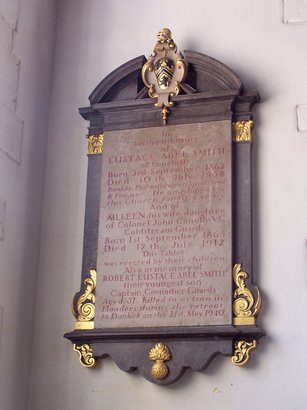 In
memory of
EUSTACE ABEL SMITH
of Longhills
Born 3rd September 1862
Died 10th July 1938
Banker, Philanthropist
& Farmer. He
this Church
AILLEEN his wife daughter
of Colonel John Conolly V.C.
Coldstream Guards
Born 1st September 1863
Died 12th July 1942
This Tablet
was erected by their children
Also in memory of
ROBERT EUSTACE ABEL SMITH
their youngest son
Captain Grenadier Guards
Aged 31. Killed in action
Flanders during the retreat
to Dunkirk on the 21st May 1940